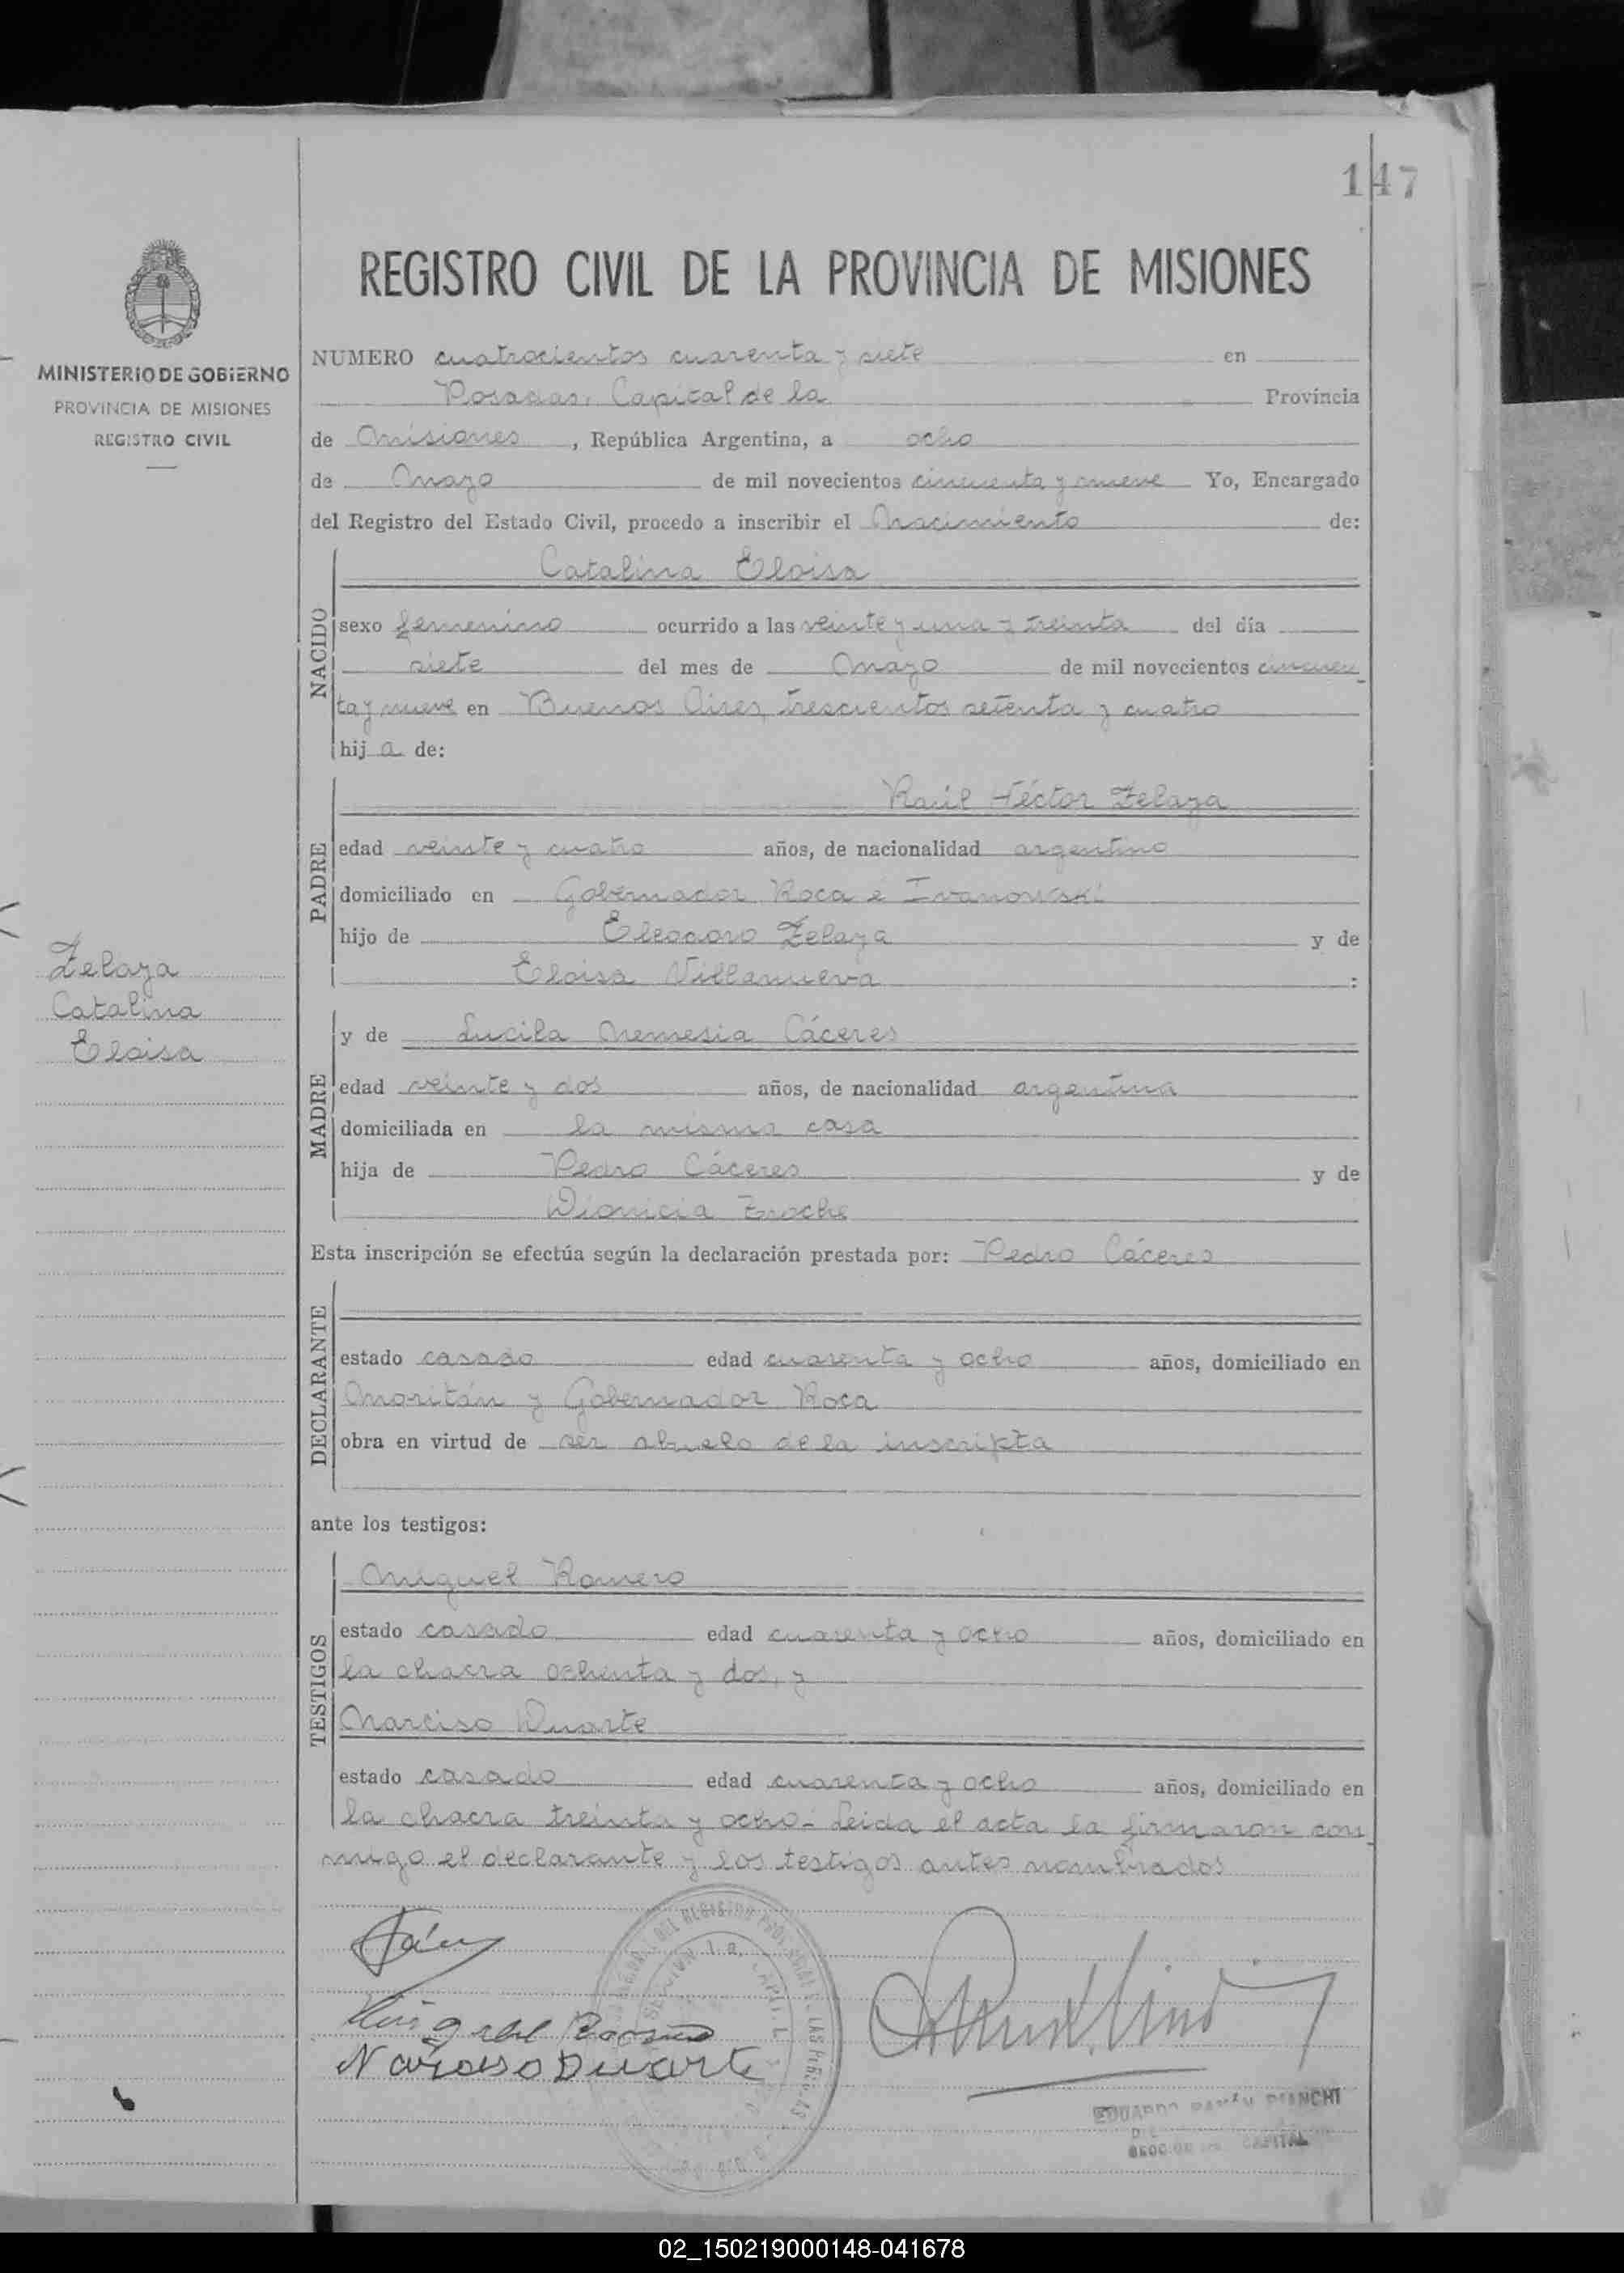 147
REGISTRO CIVIL DE LA PROVINCIA DE MISIONES
MINISTERIO DE GOBIERNO
PROVINCIA DE MISIONES
REGISTRO CIVIL
NUMERO cuatrocientos cuarenta y siete en
Posadas, Capital de la Provincia
de Misiones, República Argentina, a ocho
de Mayo de mil novecientos cincuenta y nueve Yo, Encargado
del Registro del Estado Civil, procedo a inscribir el Nacimiento de:
NACIDO
Catalina Eloisa
sexo femenino ocurrido a las veinte y una y treinta del día
siete del mes de Mayo de mil novecientos cincuen
ta y nueve en Buenos Aires, trescientos setenta y cuatro
hij a de:
PADRE
Raúl Héctor Zelaya
edad veinte y cuatro años, de nacionalidad argentino
domiciliado en Gobernador Roca é Ivanowski
hijo de Eleodoro Zelaya y de
Eloisa Villanueva :
Zelaya
Catalina
Eloisa
MADRE
y de Lucila Nemesia Cáceres
edad veinte y dos años, de nacionalidad argentina
domiciliada en la misma casa
hija de Pedro Cáceres y de
Dionicia
Esta inscripción se efectúa según la declaración prestada por: Pedro Cáceres
DECLARANTE
estado casado edad cuarenta y ocho años, domiciliado en
Moritán y Gobernador Roca
obra en virtud de ser abuelo de la inscripta
ante los testigos:
TESTIGOS
Miguel Romero
estado casado edad cuarenta y ocho años, domiciliado en
la chacra ochenta y dos, y
Narciso Duarte
estado casado edad cuarenta y ocho años, domiciliado en
la chacra treinta y ocho - Leida el acta la firmaron con
migo el declarante y los testigos antes nombrados
Narciso Duarte
EDUARDO RAMÓN BIANCHI
CAPITAL
02_150219000148-041678